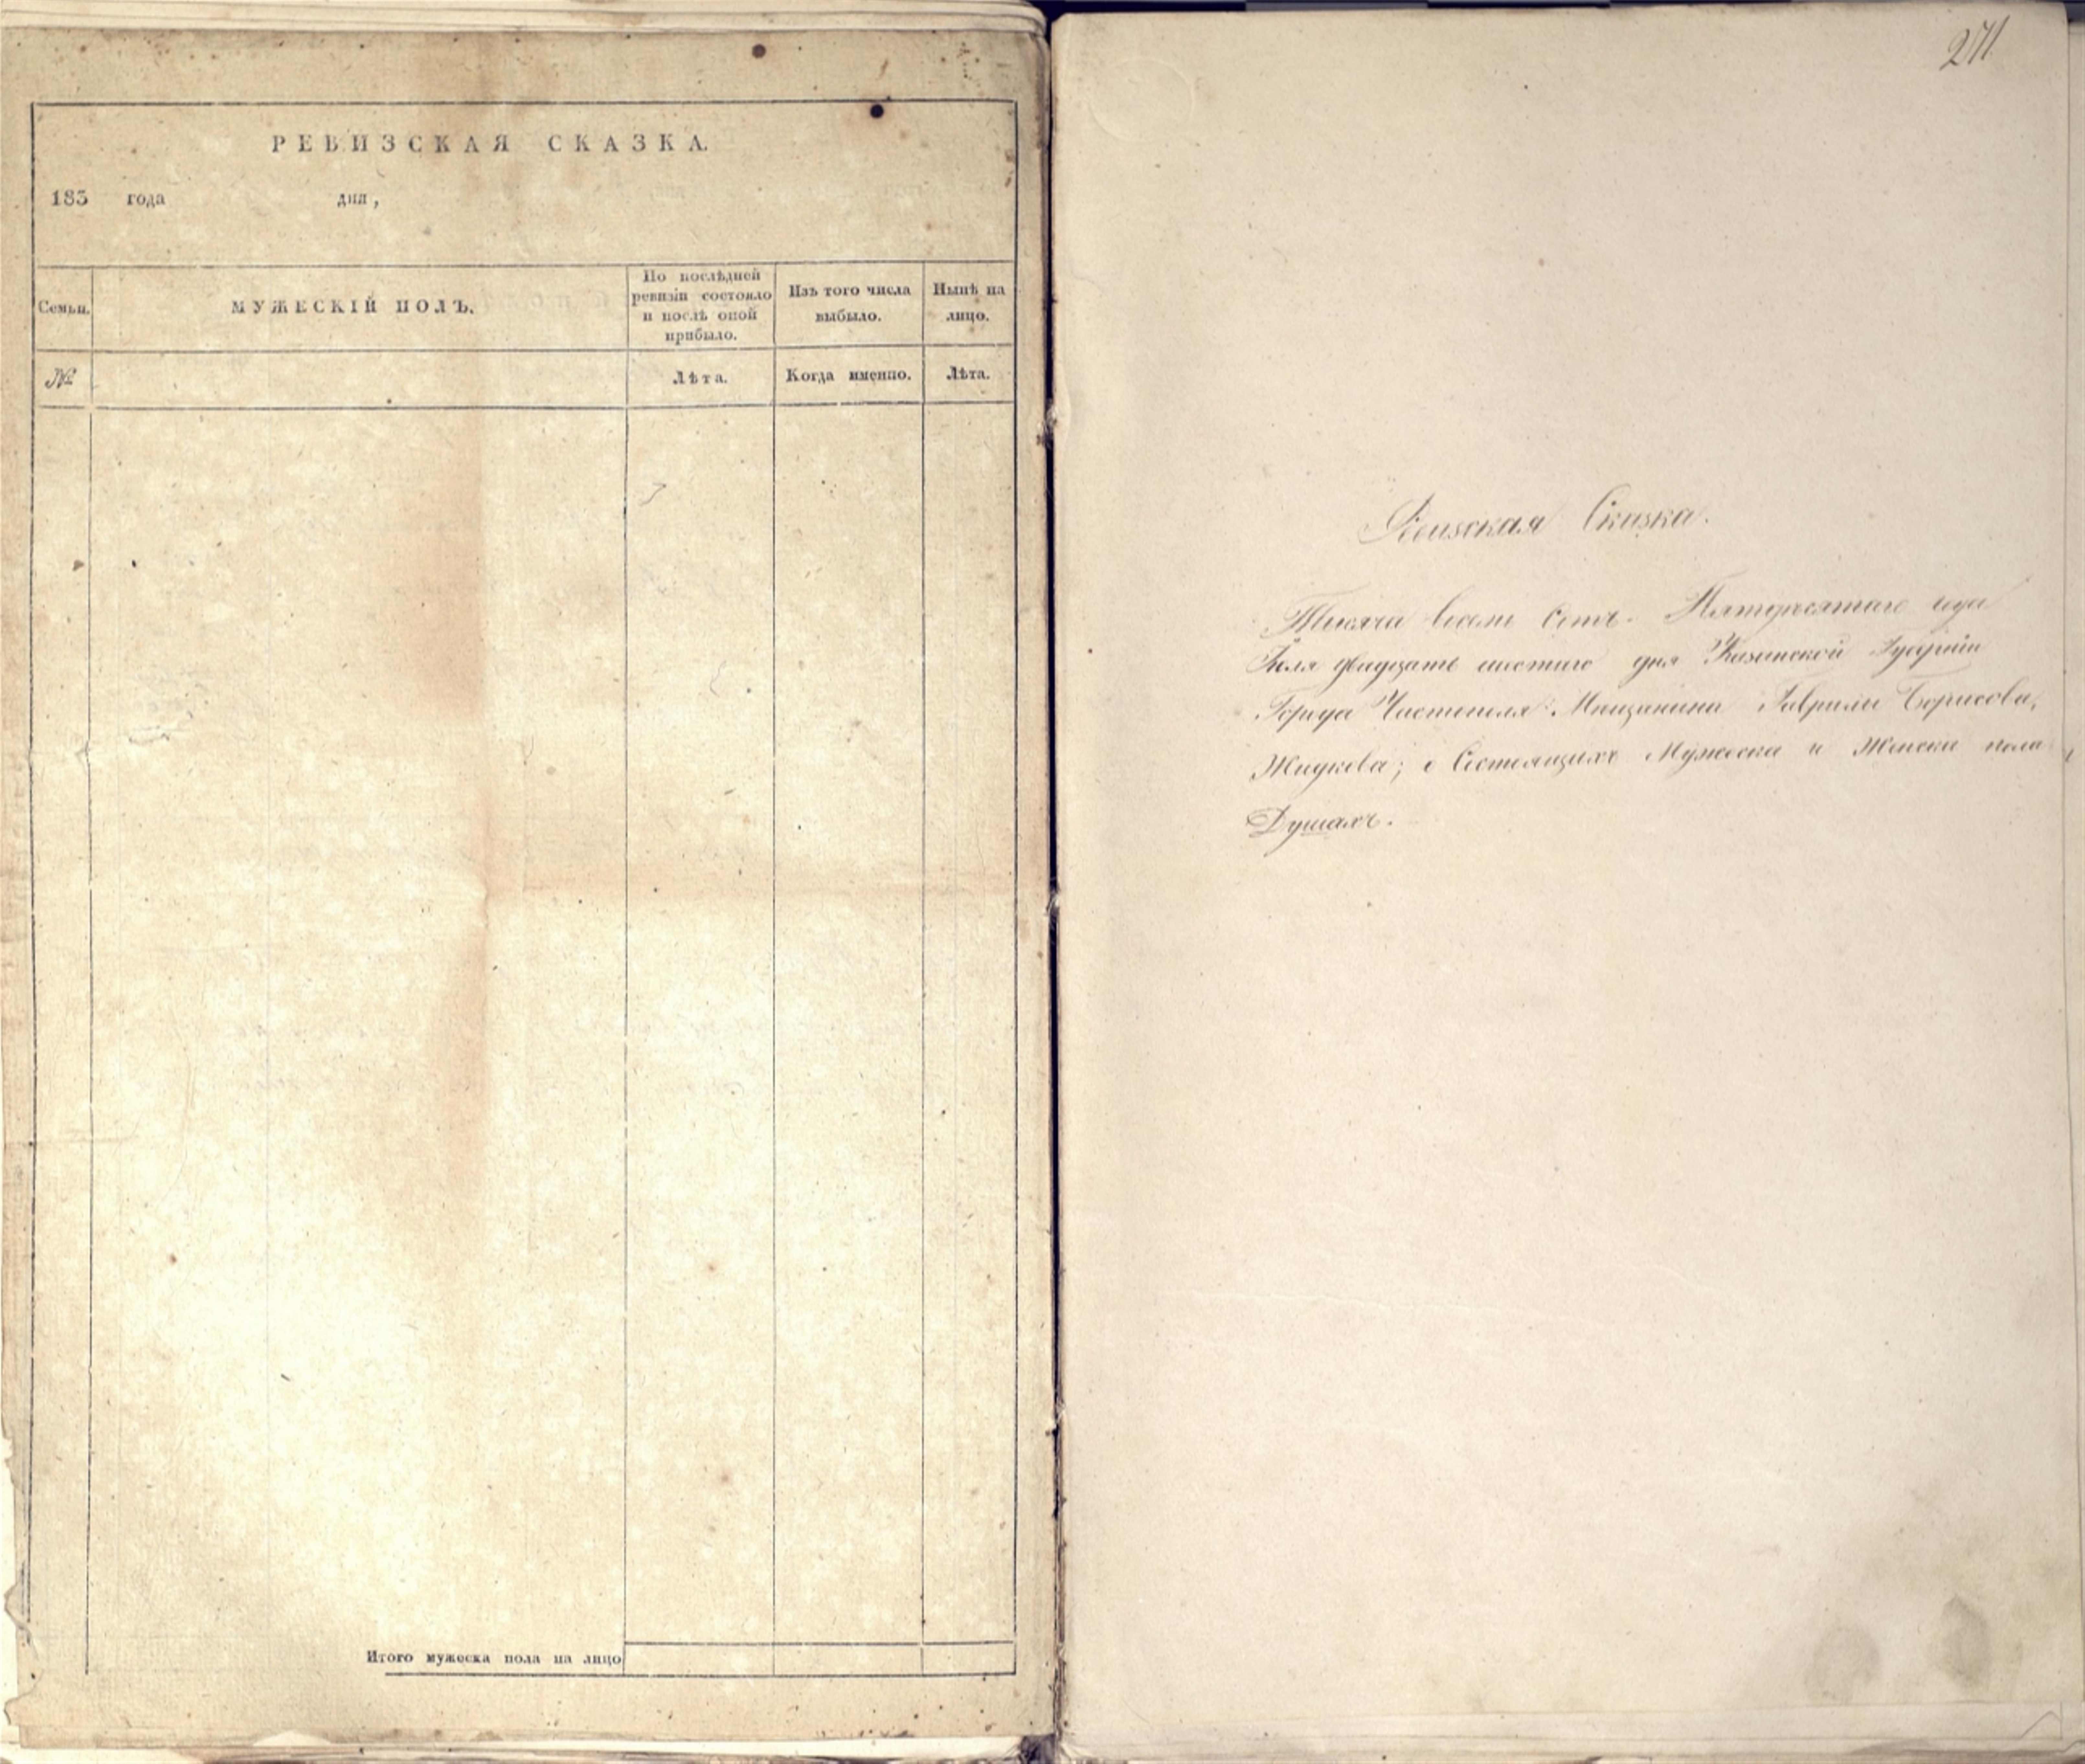 РЕВИЗСКАЯ СКАЗКА.
183 года дня,
Семьи.
МУЖЕСКІЙ ПОЛЪ.
По послѣдней
ревизіи состояло
и послѣ оной
прибыло.
Изъ того числа
выбыло.
Нынѣ на
лицо.
№
Лѣта.
Когда именно.
Лѣта.
Итого мужеска пола на лицо
271
Ревизская Сказка.
Тысяча восемь Сотъ Пятидесятаго года
Іюля двадцать шестаго дня Казанской Губерніи
Города Чистополя Мещанина Гаврилы Борисова,
Жидкова; о Состоящихъ Мужеска и Женска пола
Душахъ.